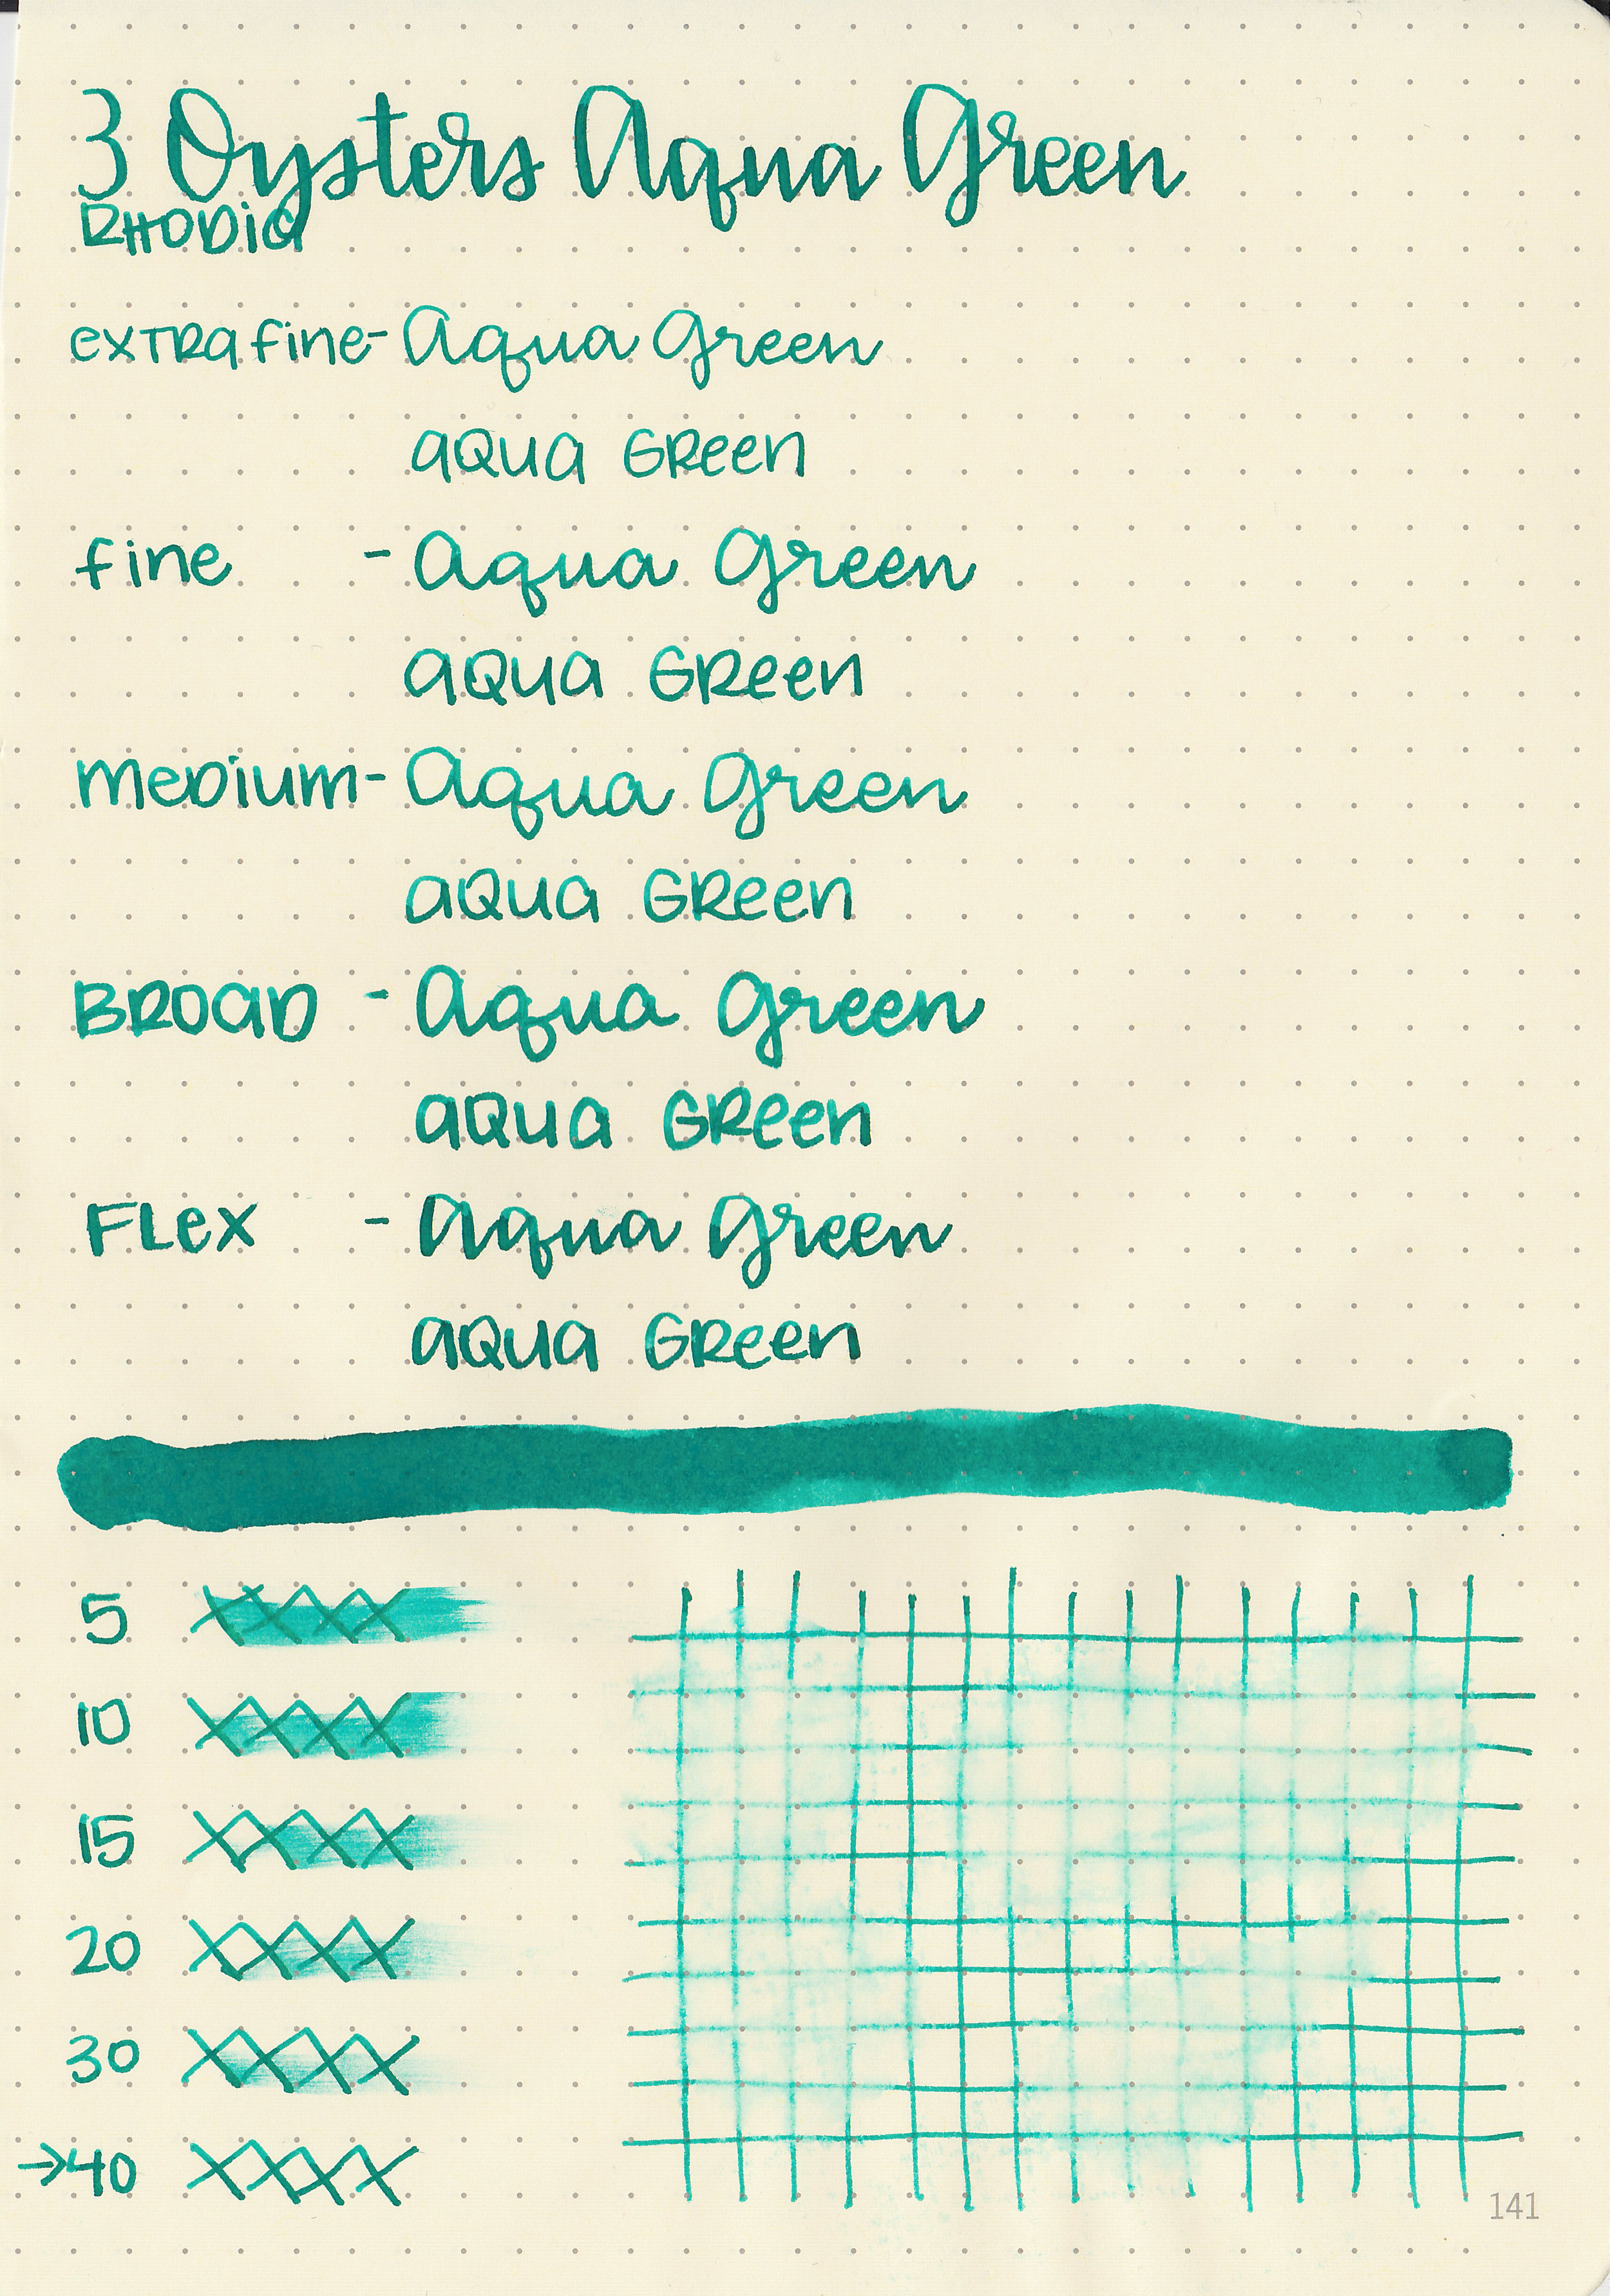 3 Oysters Aqua Green
RHODia
exTRa fine - Aqua Green
aQua GReen
fine - Aqua Green
aQua GReen
meDium - Aqua Green
aQua GReen
BROaD - Aqua Green
aQua GReen
FLex - Aqua Green
aQua GReen
5 XXXX
10 XXXX
15 XXXX
20 XXXX
30 XXXX
→40 XXXX
141